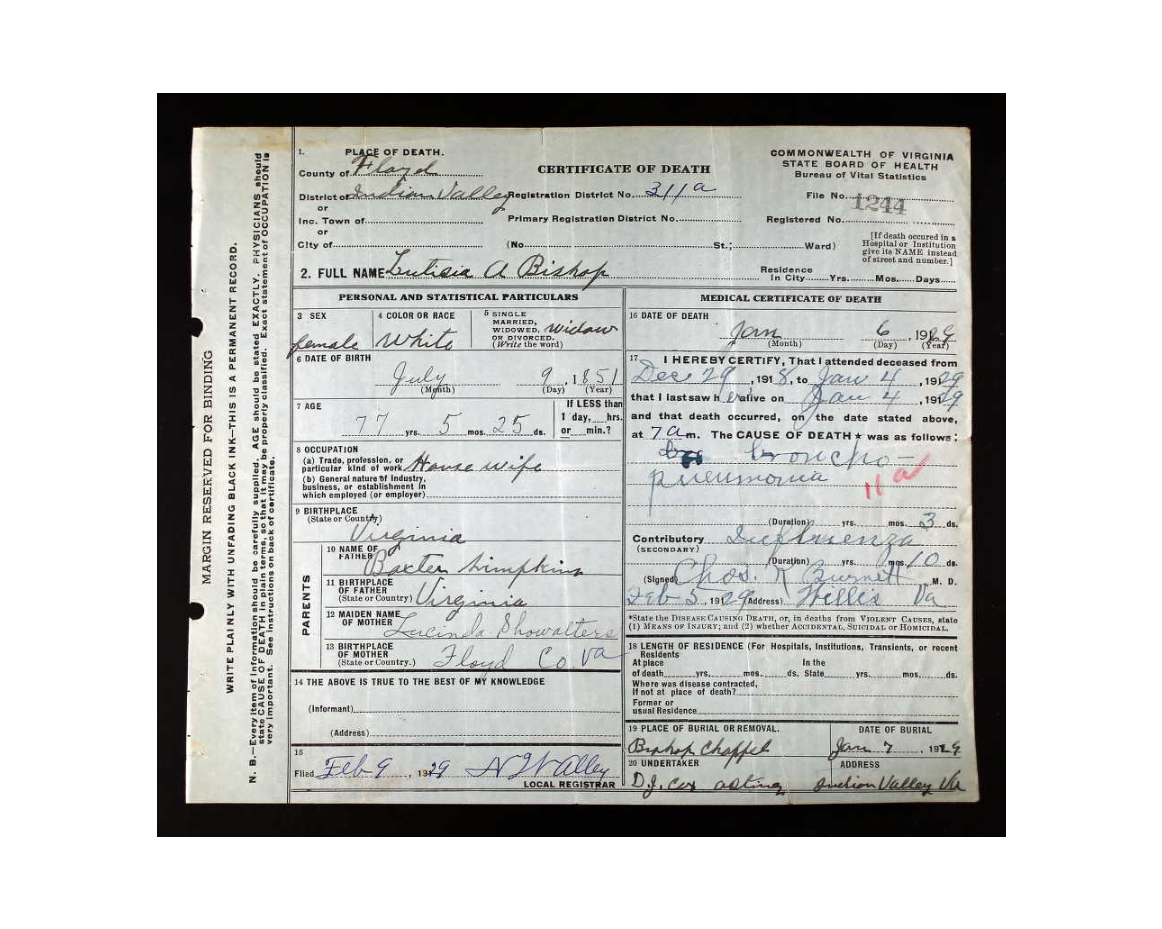 MARGIN RESERVED FOR BINDING
WRITE PLAINLY WITH UNFADING BLACK INK—THIS IS A PERMANENT RECORD.
N. B.—Every item of information should be carefully supplied. AGE should be stated EXACTLY. PHYSICIANS should
state CAUSE OF DEATH in plain terms, so that it may be properly classified. Exact statement of OCCUPATION is
very important. See instructions on back of certificate.
1. PLACE OF DEATH.
County of Floyd
District of Indian Valley
or
Inc. Town of
or
City of
CERTIFICATE OF DEATH
Registration District No. 311a
Primary Registration District No.
(No. St.; Ward)
COMMONWEALTH OF VIRGINIA
STATE BOARD OF HEALTH
Bureau of Vital Statistics
File No. 1244
Registered No.
[If death occured in a
Hospital or Institution
give its NAME instead
of street and number.]
2. FULL NAME Luticia A Bishop
Residence
In City Yrs. Mos. Days
PERSONAL AND STATISTICAL PARTICULARS
3 SEX
female
4 COLOR OR RACE
White
5 SINGLE
MARRIED,
WIDOWED,
OR DIVORCED.
(Write the word)
widow
6 DATE OF BIRTH
July 9, 1851
(Month) (Day) (Year)
7 AGE
77 yrs. 5 mos. 25 ds.
If LESS than
1 day, hrs.
or min.?
8 OCCUPATION
(a) Trade, profession, or
particular kind of work House wife
(b) General nature of Industry,
business, or establishment in
which employed (or employer)
9 BIRTHPLACE
(State or Country)
Virginia
PARENTS
10 NAME OF
FATHER Baxter Simpkins
11 BIRTHPLACE
OF FATHER
(State or Country) Virginia
12 MAIDEN NAME
OF MOTHER Lucinda Showalters
13 BIRTHPLACE
OF MOTHER
(State or Country.) Floyd Co Va
14 THE ABOVE IS TRUE TO THE BEST OF MY KNOWLEDGE
(Informant)
(Address)
15
Filed Feb 9, 1929
LOCAL REGISTRAR
MEDICAL CERTIFICATE OF DEATH
16 DATE OF DEATH
Jan 6, 1929
(Month) (Day) (Year)
17 I HEREBY CERTIFY, That I attended deceased from
Dec 29, 1918, to Jan 4, 1929
that I last saw her alive on Jan 4, 1929
and that death occurred, on the date stated above,
at 7 a m. The CAUSE OF DEATH * was as follows:
broncho-
pneumonia
11a
(Duration) yrs. mos. 3 ds.
Contributory Influenza
(SECONDARY)
(Duration) yrs. mos. 10 ds.
(Signed) Chas. K Burnett M. D.
Feb 5, 1929 (Address) Willis Va
*State the DISEASE CAUSING DEATH, or, in deaths from VIOLENT CAUSES, state
(1) MEANS OF INJURY; and (2) whether ACCIDENTAL, SUICIDAL or HOMICIDAL.
18 LENGTH OF RESIDENCE (For Hospitals, Institutions, Transients, or recent
Residents
At place In the
of death yrs. mos. ds. State yrs. mos. ds.
Where was disease contracted,
If not at place of death?
Former or
usual Residence
19 PLACE OF BURIAL OR REMOVAL.
Bishop Chappel
DATE OF BURIAL
Jan 7, 1929
20 UNDERTAKER
D.J. Cox acting
ADDRESS
Indian Valley Va